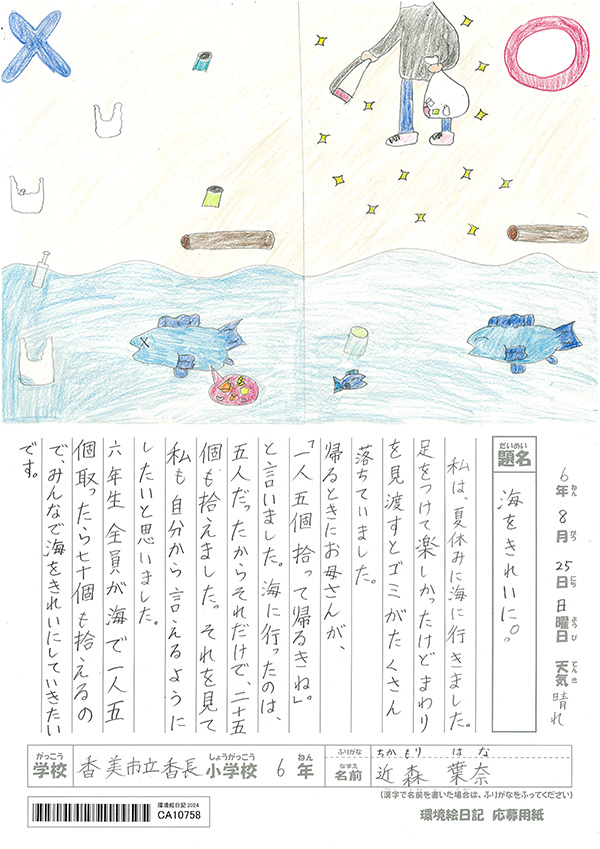 6年 8月 25日 日曜日 天気 晴れ
ねん がつ にち ようび てんき
だいめい
題名
海をきれいに。
私は、夏休みに海に行きました。
足をつけて楽しかったけどまわり
を見渡すとゴミがたくさん
落ちていました。
帰るときにお母さんが、
「一人五個拾って帰るきね」。
と言いました。海に行ったのは、
五人だったからそれだけで、二十五
個も拾えました。それを見て
私も自分から言えるように
したいと思いました。
六年生全員が海で一人五
個取ったら七十個も拾えるの
で、みんなで海をきれいにしていきたい
です。
がっこう しょうがっこう ねん
学校 香美市立香長小学校 6年
ふりがな ちかもり はな
なまえ
名前 近森 葉奈
(漢字で名前を書いた場合は、ふりがなをふってください)
環境絵日記 2024
CA10758
環境絵日記 応募用紙